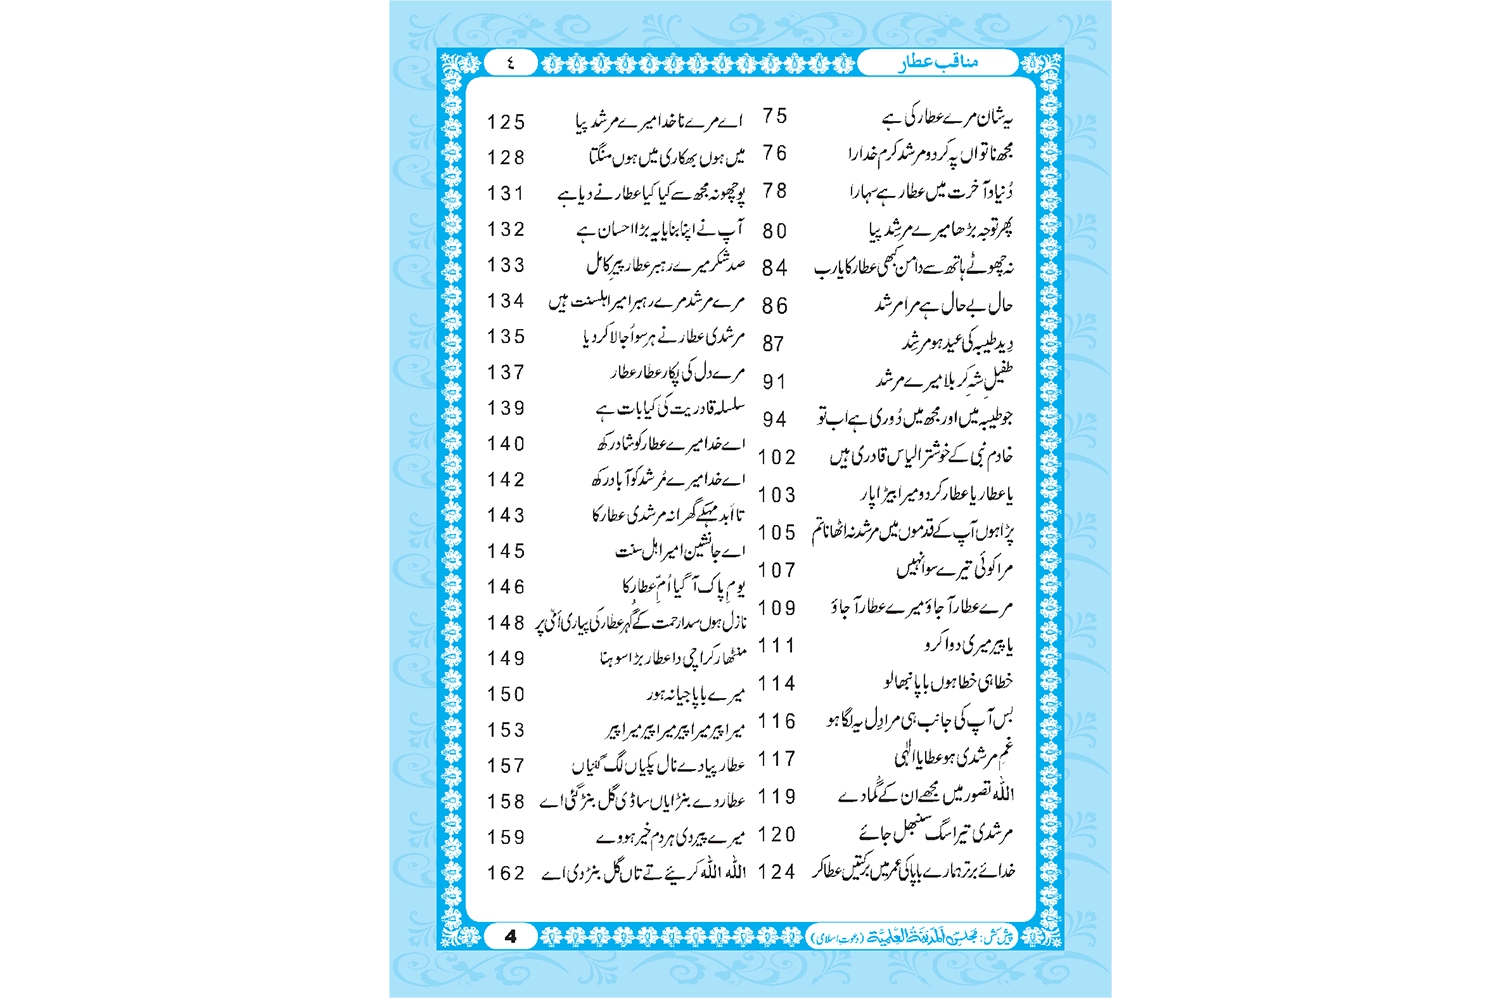 مناقب عطار
٤
یہ شان مرے عطار کی ہے 75
مجھ ناتواں پہ کر دو مرشد کرم خدارا 76
دُنیا و آخرت میں عطار ہے سہارا 78
پھر توجہ بڑھا میرے مرشِد پیا 80
نہ چھوٹے ہاتھ سے دامن کبھی عطار کا یارب 84
حال بے حال ہے مرا مرشد 86
دِید طیبہ کی عید ہو مرشِد 87
طفیلِ شہِ کربلا میرے مرشد 91
جو طیبہ میں اور مجھ میں دُوری ہے اب تو 94
خادم نبی کے خوشتر الیاس قادری ہیں 102
یا عطار یا عطار کر دو میرا بیڑا پار 103
پڑا ہوں آپ کے قدموں میں مرشد نہ اٹھانا تم 105
مرا کوئی تیرے سوا نہیں 107
مرے عطار آ جاؤ میرے عطار آ جاؤ 109
یا پیر میری دوا کرو 111
خطا ہی خطا ہوں باپا نبھا لو 114
بس آپ کی جانب ہی مرا دِل یہ لگا ہو 116
غمِ مرشدی ہو عطا یا الٰہی 117
اللہ تصور میں مجھے ان کے گُما دے 119
مرشدی تیرا سگ سنبھل جائے 120
خدائے برتر ہمارے باپا کی عمر میں برکتیں عطا کر 124
اے مرے ناخدا میرے مرشد پیا 125
میں ہوں بھکاری میں ہوں منگتا 128
پوچھو نہ مجھ سے کیا کیا عطار نے دیا ہے 131
آپ نے اپنا بنایا یہ بڑا احسان ہے 132
صد شکر میرے رہبر عطار پیرِ کامل 133
مرے مرشد مرے رہبر امیر اہلسنت ہیں 134
مرشدی عطار نے ہر سو اُجالا کر دیا 135
مرے دل کی پکار عطار عطار 137
سلسلہ قادریت کی کیا بات ہے 139
اے خدا میرے عطار کو شاد رکھ 140
اے خدا میرے مُرشد کو آباد رکھ 142
تا اَبد مہکے گھرانہ مرشدی عطار کا 143
اے جانشین امیر اہل سنت 145
یومِ پاک آ گیا اُمِّ عطار کا 146
نازل ہوں سدا رحمت کے گُہر عطار کی پیاری اُمّی پر 148
منٹھار کراچی دا عطار بڑا سوہنا 149
میرے باپا جیا نہ ہور 150
میرا پیر میرا پیر میرا پیر میرا پیر 153
عطار پیا دے نال پکیاں لگ گئیاں 157
عطار دے بنڑایاں ساڈی گل بنڑ گئی اے 158
میرے پیر دی ہر دم خیر ہووے 159
اللہ اللہ کریئے تے تاں گل بنڑدی اے 162
پیش کش: مجلس اَلْمَدِیْنَۃُ الْعِلْمِیَّۃ (دعوتِ اسلامی)
4